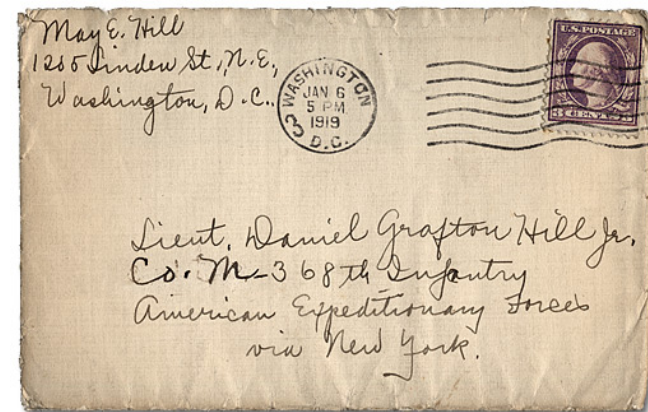 May E. Hill
1205 Linden St., N.E.,
Washington, D.C.,
WASHINGTON
JAN 6
5 PM
1919
D.C.
3
U.S. POSTAGE
3 CENTS 3
Lieut. Daniel Grafton Hill Jr.
Co. M - 368th Infantry
American Expeditionary Forces
via New York.